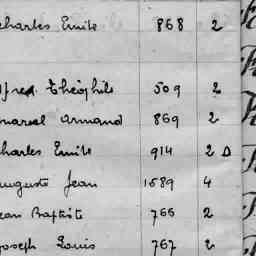 Charles Emile 868 2
Alfred Théophile 509 2
Marcel Armand 869 2
Charles Emile 914 2 Δ
Auguste Jean 1589 4
Jean Baptiste 766 2
Joseph Louis 767 2